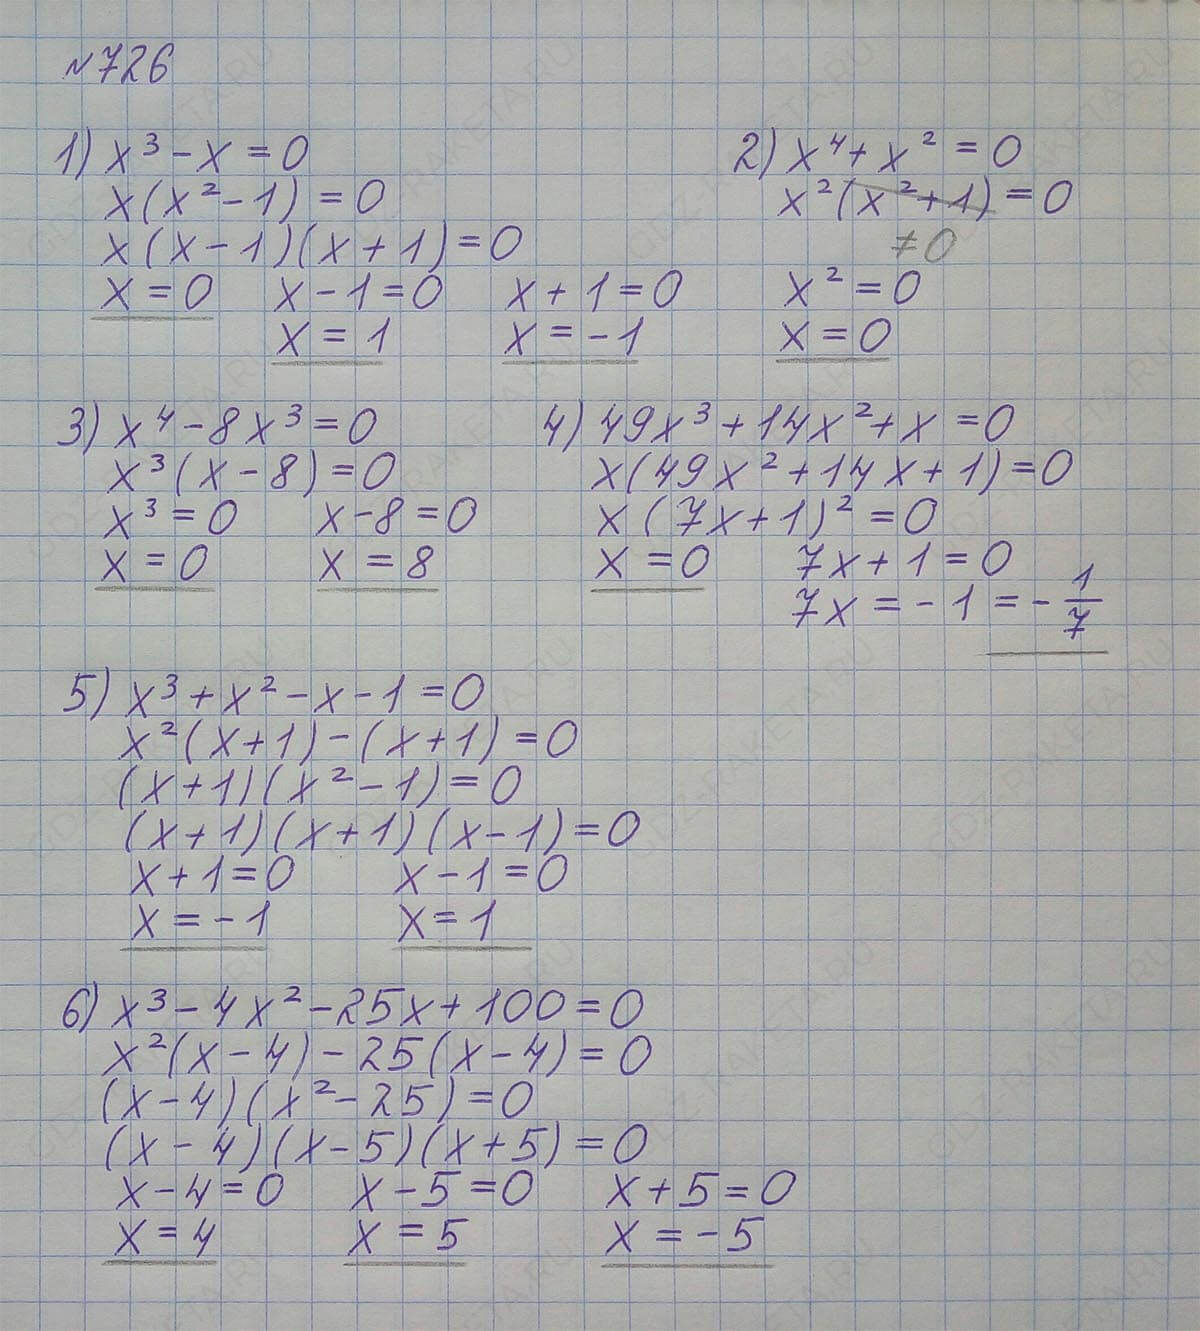 №726
1) x³ - x = 0
x(x² - 1) = 0
x(x - 1)(x + 1) = 0
x = 0 x - 1 = 0 x + 1 = 0
x = 1 x = -1
2) x⁴ + x² = 0
x²(x² + 1) = 0
≠0
x² = 0
x = 0
3) x⁴ - 8x³ = 0
x³(x - 8) = 0
x³ = 0 x - 8 = 0
x = 0 x = 8
4) 49x³ + 14x² + x = 0
x(49x² + 14x + 1) = 0
x(7x + 1)² = 0
x = 0 7x + 1 = 0
7x = -1 = -1/7
5) x³ + x² - x - 1 = 0
x²(x + 1) - (x + 1) = 0
(x + 1)(x² - 1) = 0
(x + 1)(x + 1)(x - 1) = 0
x + 1 = 0 x - 1 = 0
x = -1 x = 1
6) x³ - 4x² - 25x + 100 = 0
x²(x - 4) - 25(x - 4) = 0
(x - 4)(x² - 25) = 0
(x - 4)(x - 5)(x + 5) = 0
x - 4 = 0 x - 5 = 0 x + 5 = 0
x = 4 x = 5 x = -5
GDZ-RAKETA.RU